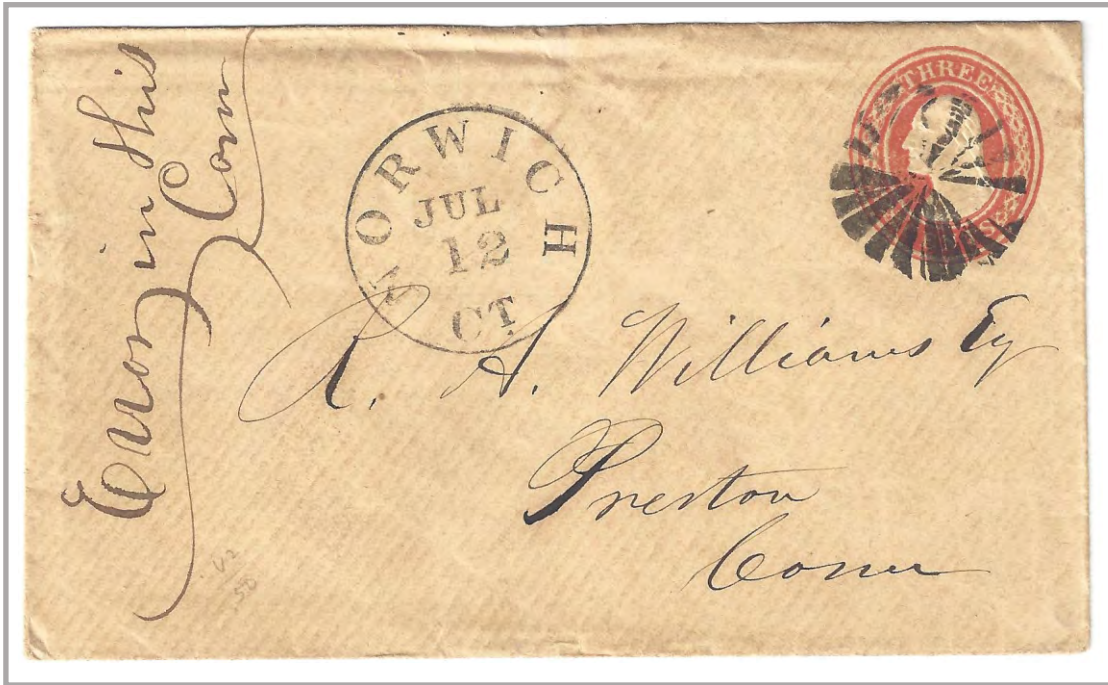 Error in this
Com
THREE
NORWICH
JUL
12
CT.
A. Williams Esq
Preston
Conn